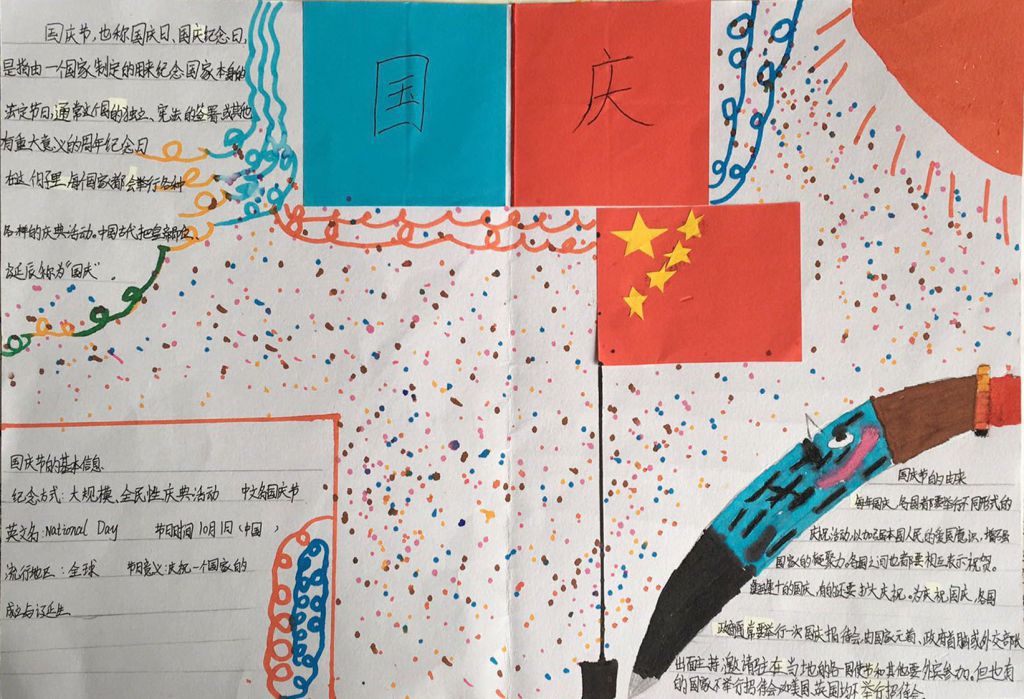 国庆节,也称国庆日、国庆纪念日,
是指由一个国家制定的用来纪念国家本身的
法定节日,通常是这个国的独立、宪法的签署或其他
有重大意义的周年纪念日
在这个日子里,每个国家都会举行各种
各样的庆典活动。中国古代把皇帝即位、
诞辰称为“国庆”.
国
庆
国庆节的基本信息
纪念方式:大规模、全民性庆典活动 中文名国庆节
英文名:National Day 节日时间10月1日(中国)
流行地区:全球 节日意义:庆祝一个国家的
成立与诞生
国庆节的由来
每年国庆,各国都要举行不同形式的
庆祝活动,以加强本国人民的爱国意识,增强
国家的凝聚力。各国之间也都要相互表示祝贺。
逢五逢十的国庆,有的还要扩大庆祝。为庆祝国庆,各国
政府通常要举行一次国庆招待会,由国家元首、政府首脑或外交部长
出面主持,邀请驻在当地的各国使节和其他重要外宾参加。但也有
的国家不举行招待会,如美国、英国均不举行招待会